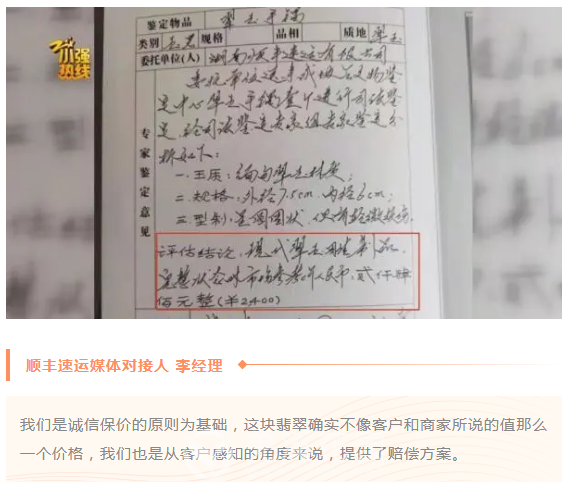 小强
热线
鉴定物品 翠玉手镯
类别 玉器 规格 品相 质地 翠玉
委托单位(人) 湖南顺丰速运有限公司
委托单位送
定中心翠玉手镯壹个进行司法鉴
定,经司法鉴定委员 专家鉴定分
析如下:
专家鉴定意见
一.玉质:缅甸翠玉材质;
二.规格:外径7.5cm.内径6cm;
三.型制:呈圆圈状,但有轻微损伤.
评估结论:现代翠玉
完整状态时市场参考价人民币:贰仟肆
佰元整(¥2400)
顺丰速运媒体对接人 李经理
我们是诚信保价的原则为基础，这块翡翠确实不像客户和商家所说的值那么
一个价格，我们也是从客户感知的角度来说，提供了赔偿方案。